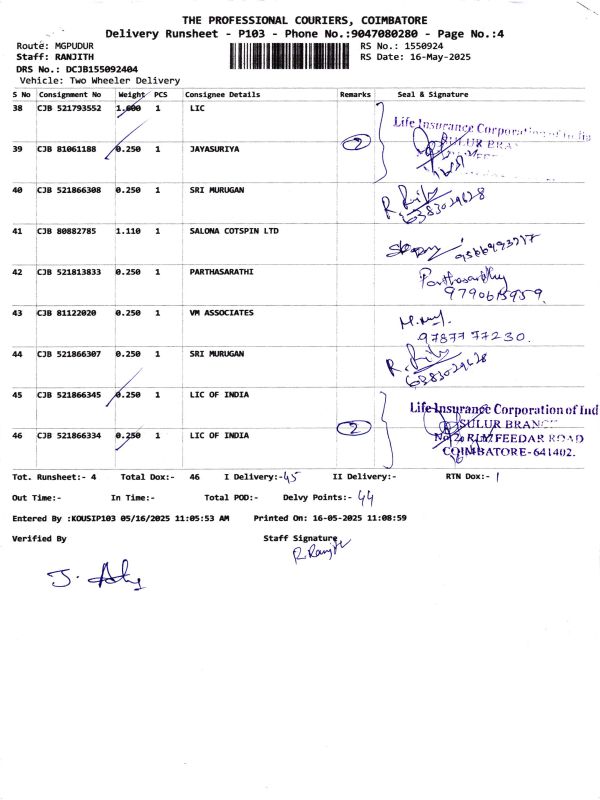 THE PROFESSIONAL COURIERS, COIMBATORE
Delivery Runsheet - P103 - Phone No.:9047080280 - Page No.:4
Route: MGPUDUR RS No.: 1550924
Staff: RANJITH RS Date: 16-May-2025
DRS No.: DCJB155092404
Vehicle: Two Wheeler Delivery
S No Consignment No Weight PCS Consignee Details Remarks Seal & Signature
38 CJB 521793552 1.600 1 LIC
Life Insurance Corporation of India
39 CJB 81061188 0.250 1 JAYASURIYA 2
SULUR BRAN
40 CJB 521866308 0.250 1 SRI MURUGAN
6383029628
41 CJB 80882785 1.110 1 SALONA COTSPIN LTD
42 CJB 521813833 0.250 1 PARTHASARATHI Parthasarathy
9790615959
43 CJB 81122020 0.250 1 VM ASSOCIATES
97877 77230.
44 CJB 521866307 0.250 1 SRI MURUGAN
6383029628
45 CJB 521866345 0.250 1 LIC OF INDIA
Life Insurance Corporation of Ind
SULUR BRANCH
46 CJB 521866334 0.250 1 LIC OF INDIA 2
FEEDAR ROAD
COIMBATORE-641402.
Tot. Runsheet:- 4 Total Dox:- 46 I Delivery:-45 II Delivery:- RTN Dox:- 1
Out Time:- In Time:- Total POD:- Delvy Points:- 44
Entered By :KOUSIP103 05/16/2025 11:05:53 AM Printed On: 16-05-2025 11:08:59
Verified By Staff Signature
R. Ranjith